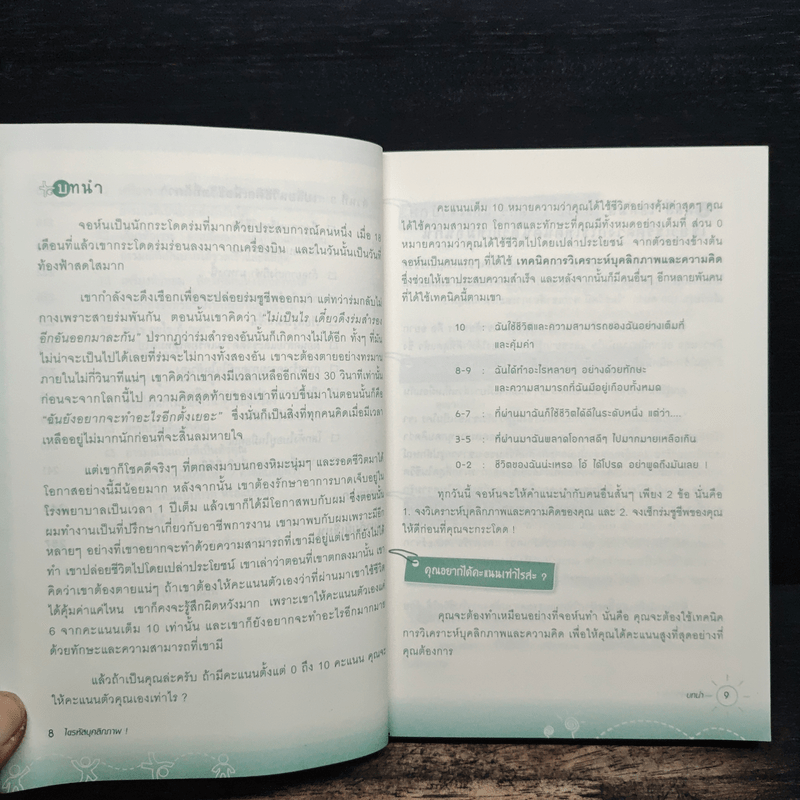 บทนำ
จอห์นเป็นนักกระโดดร่มที่มากด้วยประสบการณ์คนหนึ่ง เมื่อ 18
เดือนที่แล้วเขากระโดดร่มร่อนลงมาจากเครื่องบิน และในวันนั้นเป็นวันที่
ท้องฟ้าสดใสมาก
เขากำลังจะดึงเชือกเพื่อจะปล่อยร่มชูชีพออกมา แต่ทว่าร่มกลับไม่
กางเพราะสายร่มพันกัน ตอนนั้นเขาคิดว่า "ไม่เป็นไร เดี๋ยวดึงร่มสำรอง
อีกอันออกมาละกัน" ปรากฏว่าร่มสำรองอันนั้นก็เกิดกางไม่ได้อีก ทั้งๆ ที่มัน
ไม่น่าจะเป็นไปได้เลยที่ร่มจะไม่กางทั้งสองอัน เขาจะต้องตายอย่างทรมาน
ภายในไม่กี่วินาทีแน่ๆ เขาคิดว่าเขาคงมีเวลาเหลืออีกเพียง 30 วินาทีเท่านั้น
ก่อนจะจากโลกนี้ไป ความคิดสุดท้ายของเขาที่แวบขึ้นมาในตอนนั้นก็คือ
"ฉันยังอยากจะทำอะไรอีกตั้งเยอะ" ซึ่งนั่นก็เป็นสิ่งที่ทุกคนคิดเมื่อมีเวลา
เหลืออยู่ไม่มากนักก่อนที่จะสิ้นลมหายใจ
แต่เขาก็โชคดีจริงๆ ที่ตกลงมาบนกองหิมะนุ่มๆ และรอดชีวิตมาได้
โอกาสอย่างนี้มีน้อยมาก หลังจากนั้น เขาต้องรักษาอาการบาดเจ็บอยู่ใน
โรงพยาบาลเป็นเวลา 1 ปีเต็ม แล้วเขาก็ได้มีโอกาสพบกับผม ซึ่งตอนนั้น
ผมทำงานเป็นที่ปรึกษาเกี่ยวกับอาชีพการงาน เขามาพบกับผมเพราะมีอีก
หลายๆ อย่างที่เขาอยากจะทำด้วยความสามารถที่เขามีอยู่แต่เขาก็ยังไม่ได้
ทำ เขาปล่อยชีวิตไปโดยเปล่าประโยชน์ เขาเล่าว่าตอนที่เขาตกลงมานั้น เขา
คิดว่าเขาจะต้องตายแน่ๆ ถ้าเขาต้องให้คะแนนตัวเองว่าที่ผ่านมาเขาใช้ชีวิต
ได้คุ้มค่าแค่ไหน เขาก็คงจะรู้สึกผิดหวังมาก เพราะเขาให้คะแนนตัวเองแค่
6 จากคะแนนเต็ม 10 เท่านั้น และเขาก็ยังอยากจะทำอะไรอีกมากมาย
ด้วยทักษะและความสามารถที่เขามี
แล้วถ้าเป็นคุณล่ะครับ ถ้ามีคะแนนตั้งแต่ 0 ถึง 10 คะแนน คุณจะ
ให้คะแนนตัวคุณเองเท่าไร ?
8 ไขรหัสบุคลิกภาพ !
คะแนนเต็ม 10 หมายความว่าคุณได้ใช้ชีวิตอย่างคุ้มค่าสุดๆ คุณ
ได้ใช้ความสามารถ โอกาสและทักษะที่คุณมีทั้งหมดอย่างเต็มที่ ส่วน 0
หมายความว่าคุณได้ใช้ชีวิตไปโดยเปล่าประโยชน์ จากตัวอย่างข้างต้น
จอห์นเป็นคนแรกๆ ที่ได้ใช้ เทคนิคการวิเคราะห์บุคลิกภาพและความคิด
ซึ่งช่วยให้เขาประสบความสำเร็จ และหลังจากนั้นก็มีคนอื่นๆ อีกหลายพันคน
ที่ได้ใช้เทคนิคนี้ตามเขา
10 : ฉันใช้ชีวิตและความสามารถของฉันอย่างเต็มที่
และคุ้มค่า
8-9 : ฉันได้ทำอะไรหลายๆ อย่างด้วยทักษะ
และความสามารถที่ฉันมีอยู่เกือบทั้งหมด
6-7 : ที่ผ่านมาฉันก็ใช้ชีวิตได้ดีในระดับหนึ่ง แต่ว่า....
3-5 : ที่ผ่านมาฉันพลาดโอกาสดีๆ ไปมากมายเหลือเกิน
0-2 : ชีวิตของฉันน่ะเหรอ โอ้ ได้โปรด อย่าพูดถึงมันเลย !
ทุกวันนี้ จอห์นจะให้คำแนะนำกับคนอื่นสั้นๆ เพียง 2 ข้อ นั่นคือ
1. จงวิเคราะห์บุคลิกภาพและความคิดของคุณ และ 2. จงเช็กร่มชูชีพของคุณ
ให้ดีก่อนที่คุณจะกระโดด !
คุณอยากได้คะแนนเท่าไรล่ะ ?
คุณจะต้องทำเหมือนอย่างที่จอห์นทำ นั่นคือ คุณจะต้องใช้เทคนิค
การวิเคราะห์บุคลิกภาพและความคิด เพื่อให้คุณได้คะแนนสูงที่สุดอย่างที่
คุณต้องการ
บทนำ 9